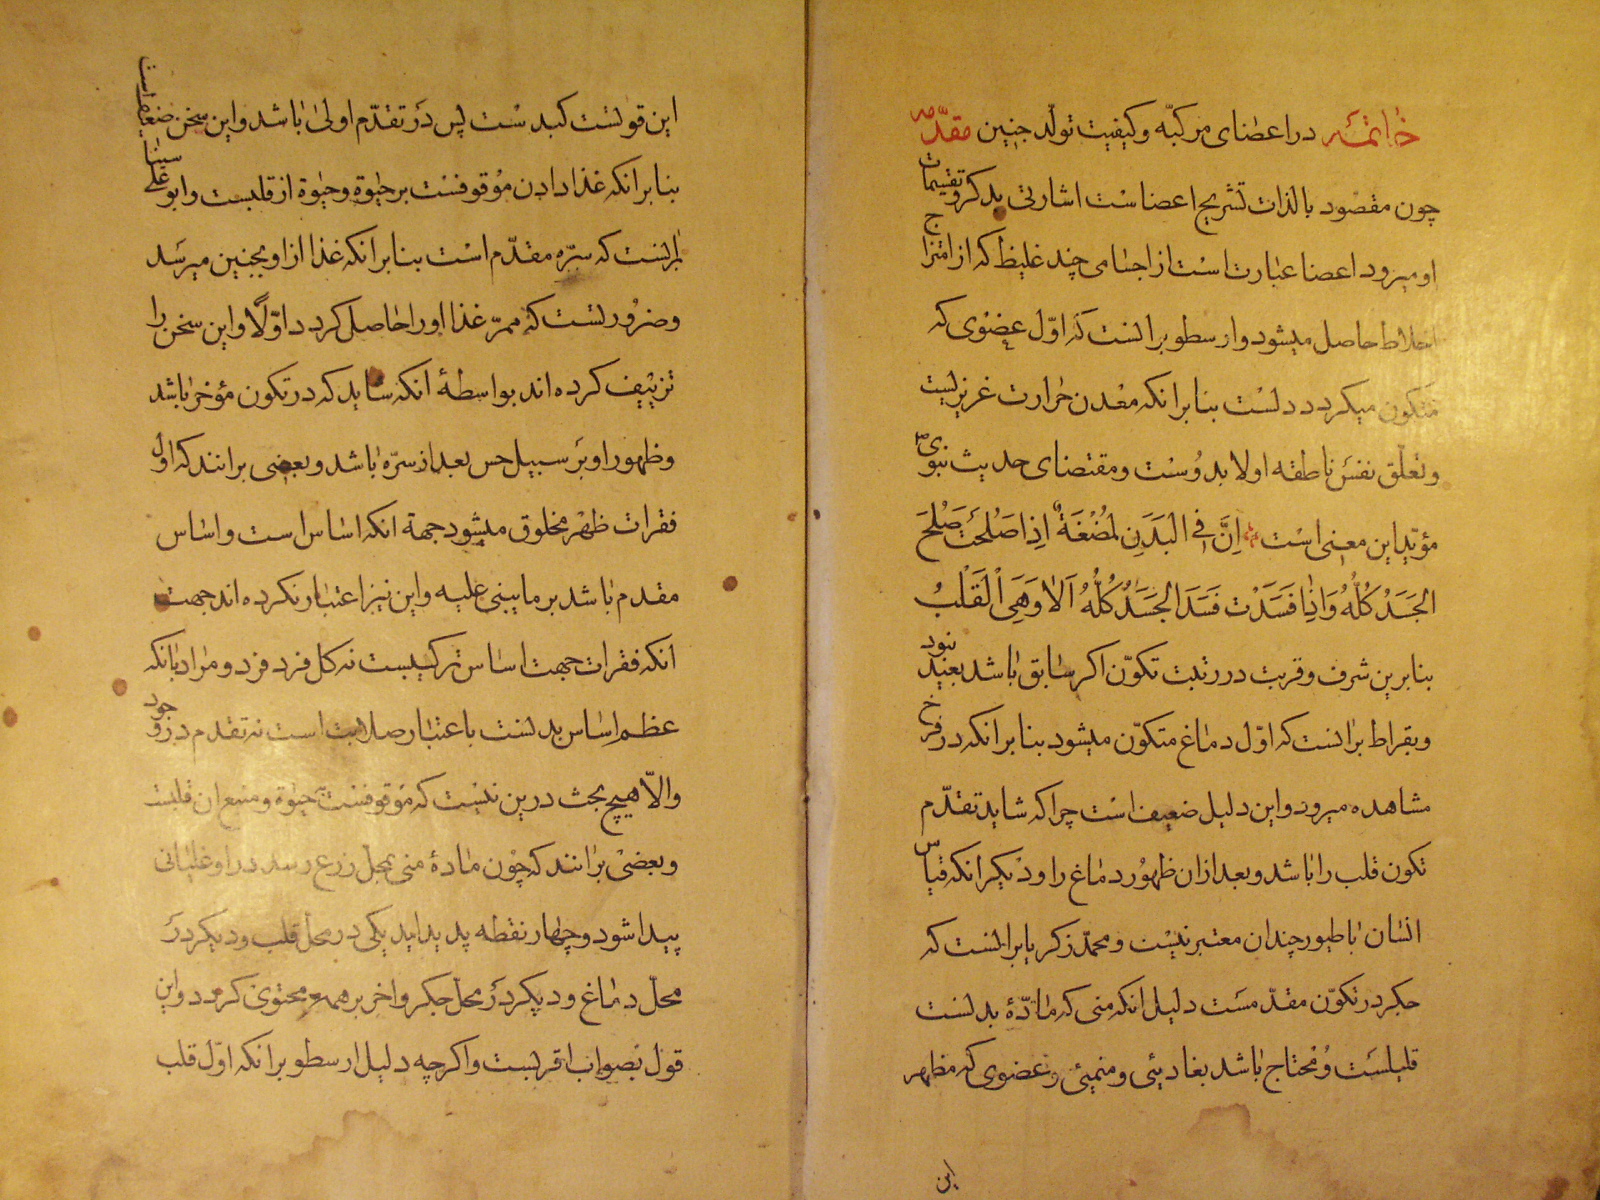 خاتمه در اعضای مرکبه و کیفیت تولد جنین مقدمه
چون مقصود بالذات تشریح اعضاست اشارتی بدکر و تقسیمات
او میرود اعضا عبارت است از اجسامی چند غلیظ که از امتزاج
اخلاط حاصل میشود و ارسطو برانست که اول عضوی که
متکون میکردد دلست بنابرانکه معدن حرارت غریزیست
و تعلق نفس ناطقه اولا بدوست و مقتضای حدیث نبوی
مؤید این معنی است اِنَّ فِی البَدَنِ لَمُضْغَةٌ اِذَا صَلُحَتْ صَلُحَ
الجَسَدُ کُلُّهُ وَاِذَا فَسَدَتْ فَسَدَ الجَسَدُ کُلُّهُ اَلَا وَهِیَ الْقَلْبُ
بنابرین شرف و قربت در رتبت تکوّن اکر سابق باشد بعید نبود
و بقراط برانست که اوّل دماغ متکوّن میشود بنابرانکه در فرخ
مشاهده میرود و این دلیل ضعیف است چرا که شاید تقدّم
تکون قلب را باشد و بعد ازان ظهور دماغ را و دیکر انکه قیاس
انسان با طیور چندان معتبر نیست و محمد زکریا برانست که
جکر در تکوّن مقدّمست دلیل انکه منی که مادّهٔ بدنست
قلیلست و محتاج باشد بغادیئی و منمیئی و عضوی که مظهر
این
این قوتست کبدست پس در تقدّم اولی باشد و این سخن ضعیف است
بنابرانکه غذا دادن موقوفست بر حیوة و حیوة از قلبست و ابو علی سینا
برانست که سرّه مقدّم است بنابرانکه غذا ازو بجنین میرسد
و ضرورتست که ممرّ غذا او را حاصل کردد اوّلا و این سخن را
تزییف کرده اند بواسطهٔ انکه شاید که در تکون مؤخر باشد
و ظهور او بر سبیل حس بعد از سرّه باشد و بعضی برانند که اول
فقرات ظهر مخلوق میشود جهة انکه اساس است و اساس
مقدم باشد بر ما یبنی علیه و این نیز اعتبار نکرده اند جهت
انکه فقرات جهت اساس ترکیبست نه کل فرد فرد و مراد بانکه
عظم اساس بدنست باعتبار صلابت است نه تقدم در وجود
والّا هیچ بحث درین نیست که موقوفست بحیوة و منبع ان قلبست
و بعضی برانند که چون مادهٔ منی بمحل زرع رسد در او غلیانی
پیدا شود و چهار نقطه پدید اید یکی در محل قلب و دیکر در
محلّ دماغ و دیکر در محلّ جکر و اخر بر همه محتوی کردد و این
قول بصواب اقربست و اکرچه دلیل ارسطو برانکه اوّل قلب